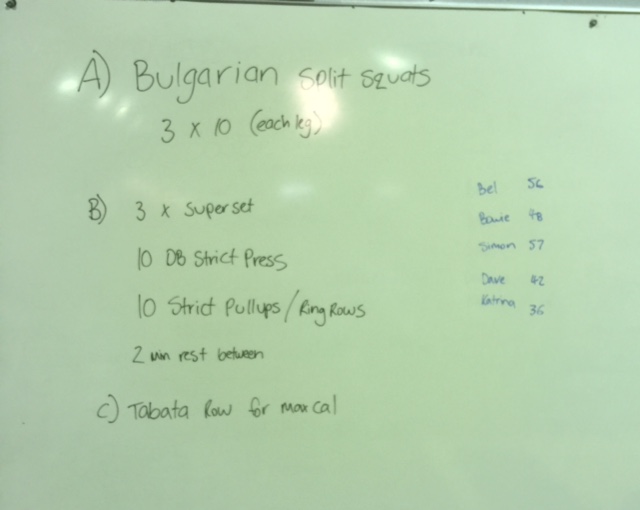 A) Bulgarian split squats
3 x 10 (each leg)
B) 3 x superset
10 DB Strict Press
10 Strict Pullups/Ring Rows
2 min rest between
C) Tabata Row for max cal
Bel 56
48
Simon 57
Dave 42
Katrina 36